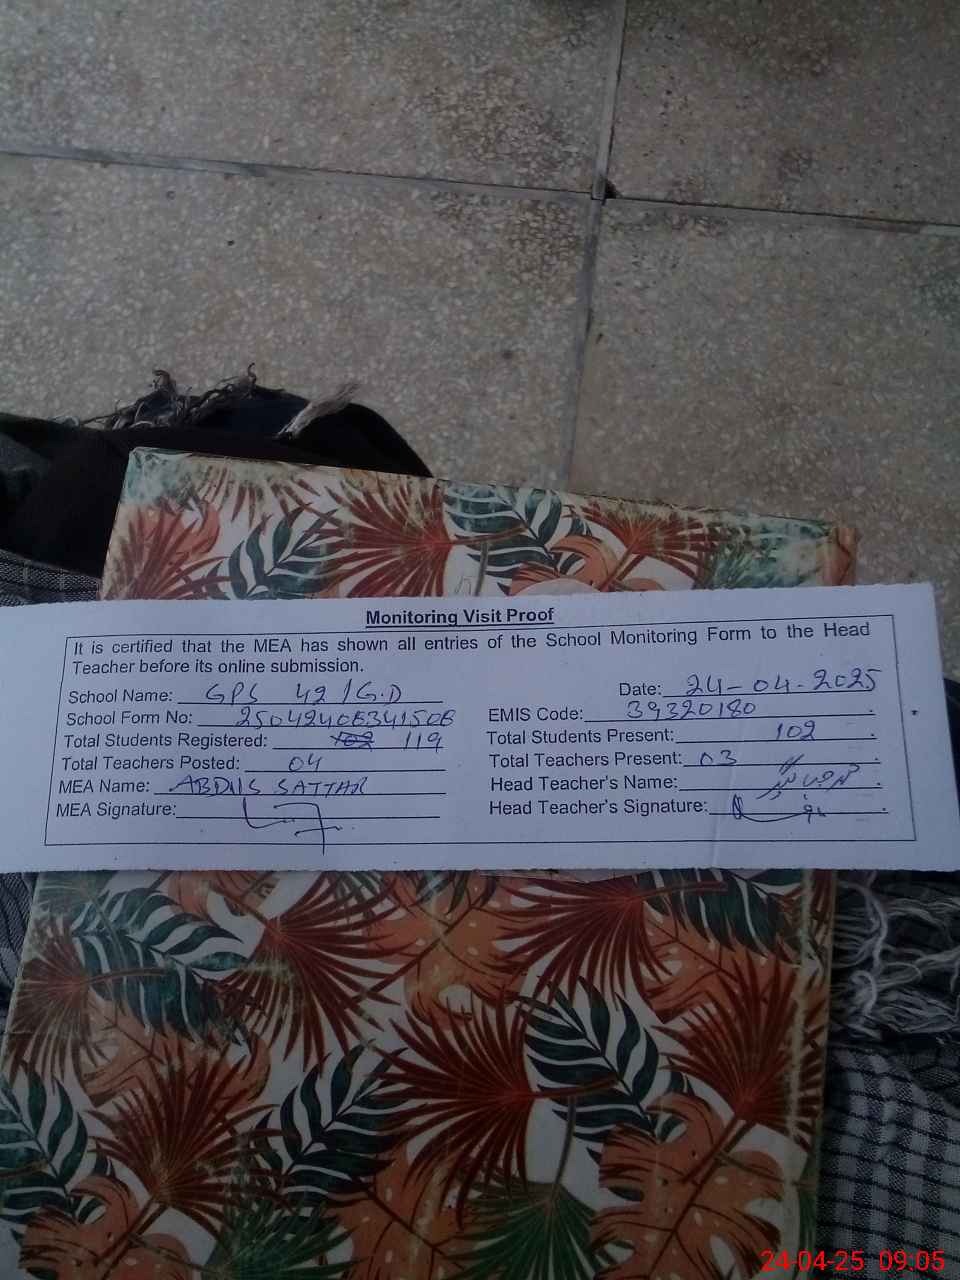 Monitoring Visit Proof
It is certified that the MEA has shown all entries of the School Monitoring Form to the Head
Teacher before its online submission.
School Name: GPS 42/G.D Date: 24-04-2025
School Form No: EMIS Code: 39320180
Total Students Registered: 119 Total Students Present: 102
Total Teachers Posted: 04 Total Teachers Present: 03
MEA Name: ABDUS SATTAR Head Teacher's Name:
MEA Signature: Head Teacher's Signature:
24-04-25 09:05